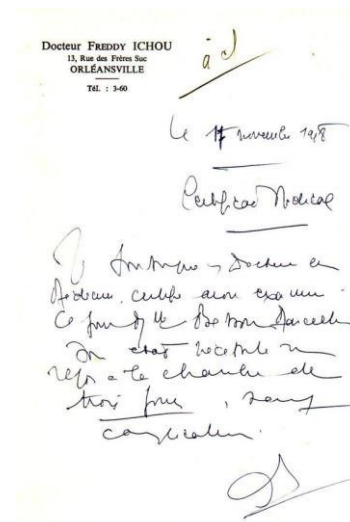 Docteur FREDDY ICHOU
13, Rue des Frères Suc
ORLÉANSVILLE
Tél. : 3-60
Le 17 novembre
Certificat Medical
Je soussigné Docteur en
Médecine, certifie avoir examiné
ce jour Melle
Son état nécessite un
repos à la chambre de
trois jours, sauf
complication.